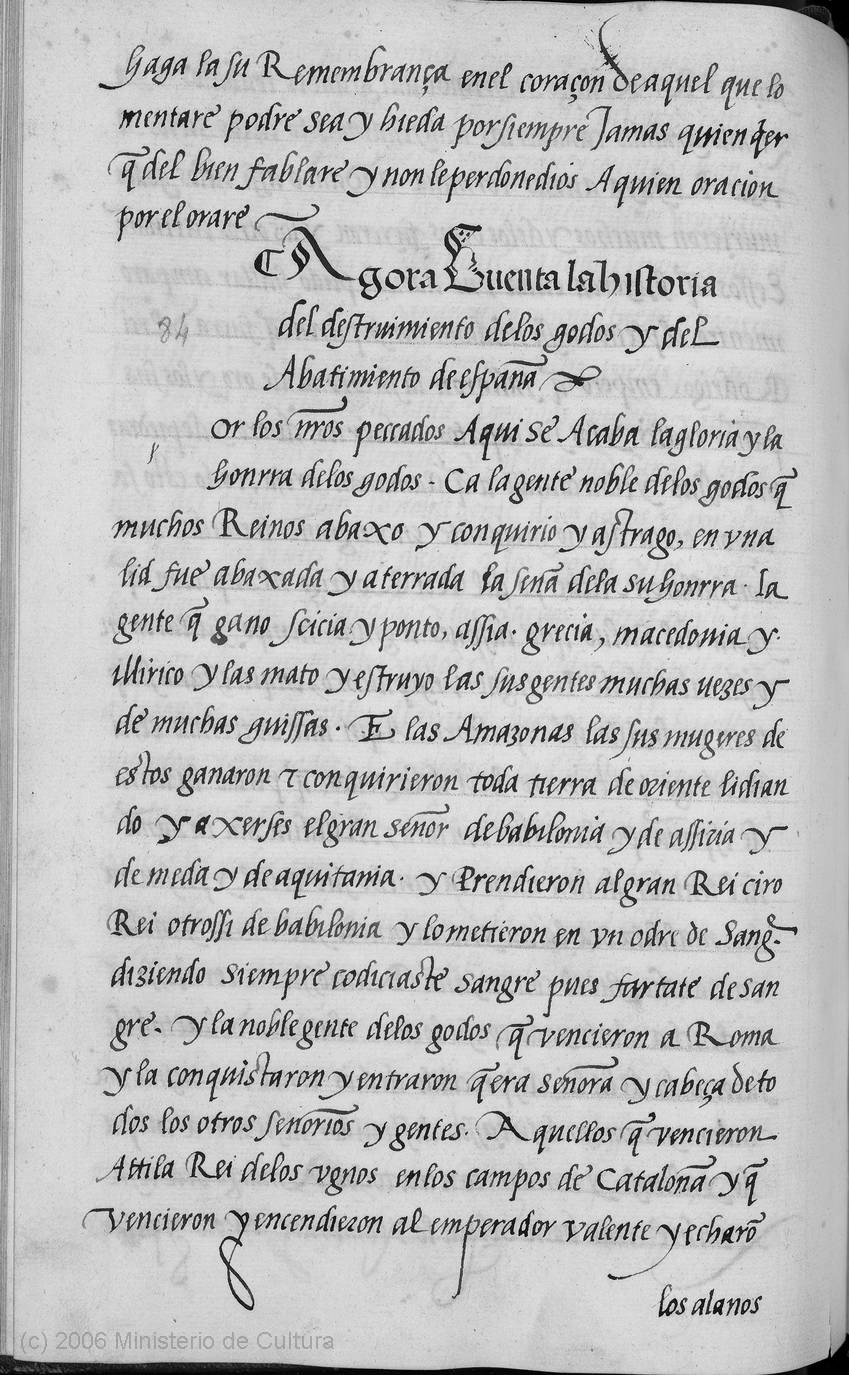 haga la su Remembrança enel coraçon de aquel que lo
mentare podre sea y hieda por siempre Jamas quien q̄er
q̄ del bien fablare y non le perdone dios A quien oracion
por el orare
Agora Cuenta la historia
84
del destruimiento delos godos y del
Abatimiento de españa
or los nr̄os peccados Aqui se Acaba la gloria y la
honrra delos godos - Ca la gente noble delos godos q̄
muchos Reinos abaxo y conquirio y astrago, en vna
lid fue abaxada y aterrada la seña dela su honrra · la
gente q̄ gano scicia y ponto, assia · grecia, macedonia y ·
illirico y las mato y estruyo las sus gentes muchas uezes y
de muchas guissas · E las Amazonas las sus mugeres de
estos ganaron τ conquirieron toda tierra de oriente lidian
do y a xerses el gran señor de babilonia y de assiria y
de meda y de aquitania · y Prendieron al gran Rei ciro
Rei otrossi de babilonia y lo metieron en vn odre de Sang̃ ·
diziendo siempre codiciaste sangre pues fartate de san
gre - y la noble gente delos godos q̄ vencieron a Roma
y la conquistaron y entraron q̄ era señora y cabeça de to
dos los otros señorios y gentes · Aquellos q̄ vencieron
Attila Rei delos vgnos enlos campos de Cataloña y q̄
vencieron y encendieron al emperador valente y echarõ
los alanos
(c) 2006 Ministerio de Cultura